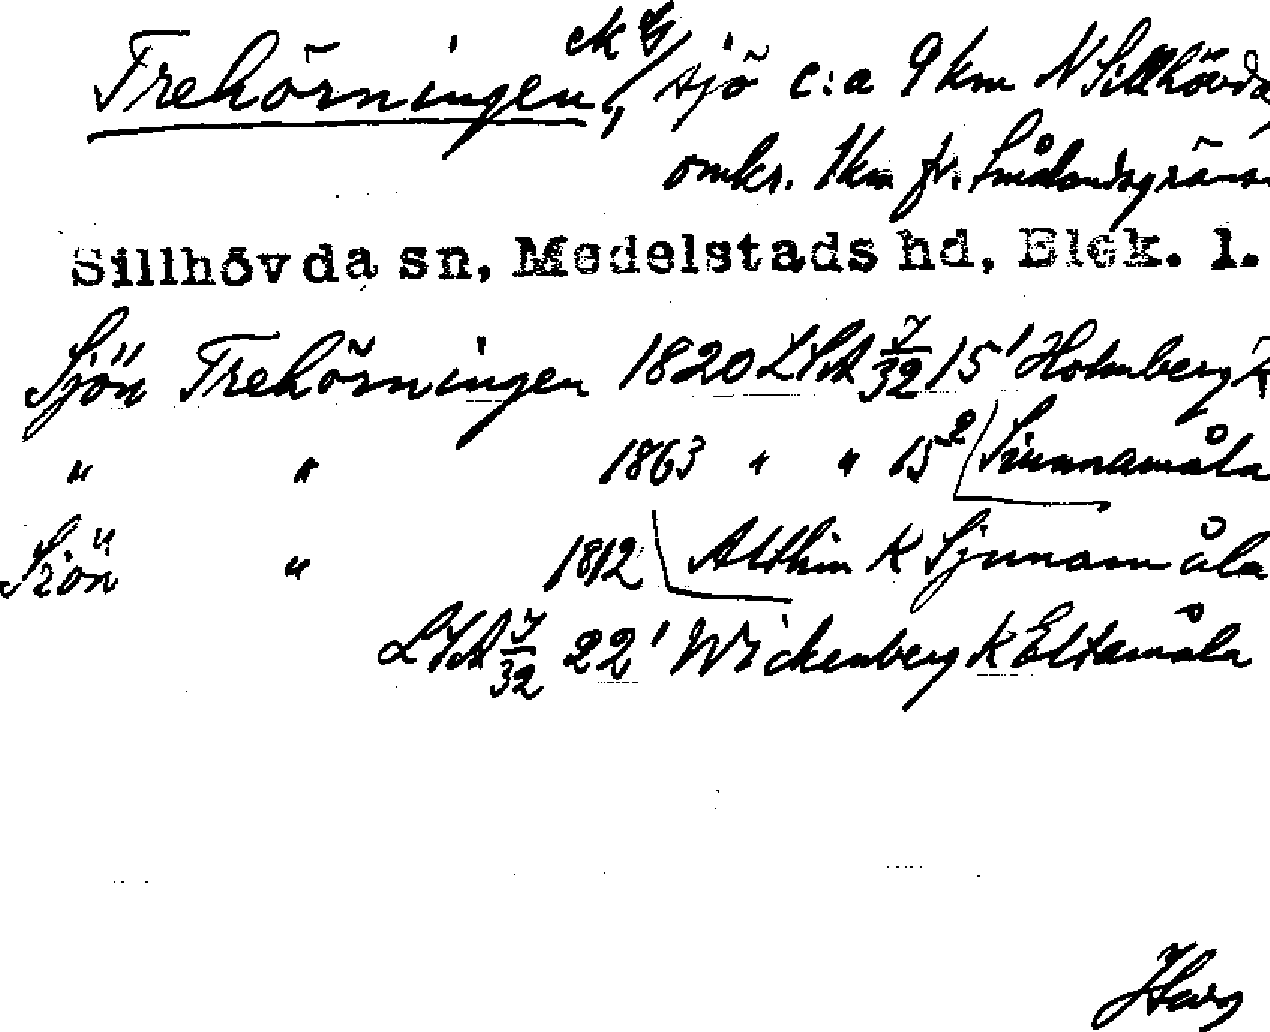 Trehörningen, sjö c:a 9 km N Sillhövda
omkr. 1 km fr. Smålandsgräns
Sillhövda sn, Medelstads hd, Blek. l.
Sjön Trehörningen 1820 LSA 7/32 15¹ Holmberg k
" " 1863 " " 15² Sinnamåla
Sjön " 1812 Althin K Sjunamåla
LSA 7/32 22¹ Wickenberg K Eltamåla